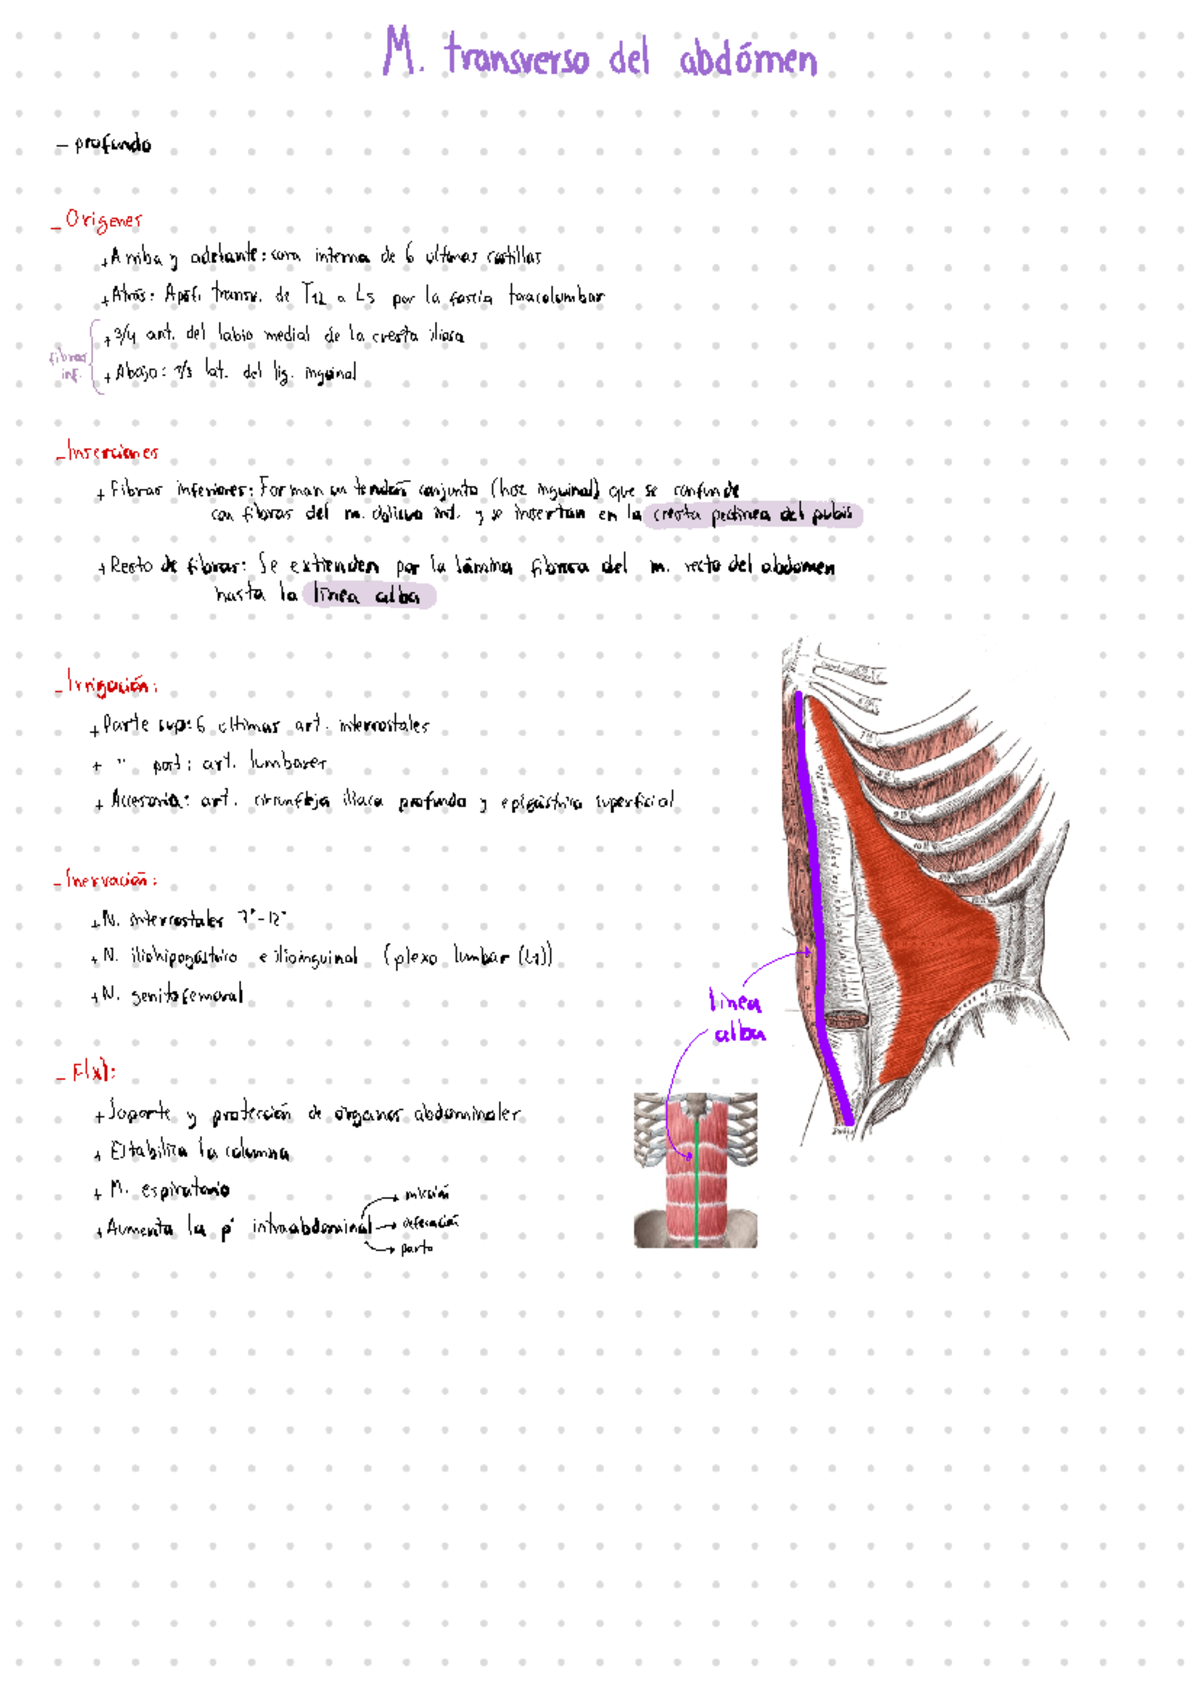 M. transverso del abdómen
- profundo
- Orígenes
+ Arriba y adelante: cara interna de 6 últimas costillas
+ Atrás: Apófi. transv. de T12 a L5 por la fascia toracolumbar
+ 3/4 ant. del labio medial de la cresta ilíaca
fibras inf.
+ Abajo: 1/3 lat. del lig. inguinal
- Inserciones
+ Fibras inferiores: Forman un tendón conjunto (hoz inguinal) que se confunde
con fibras del m. oblicuo int. y se insertan en la cresta pectínea del pubis
+ Resto de fibras: Se extienden por la lámina fibrosa del m. recto del abdomen
hasta la línea alba
- Irrigación:
+ Parte sup: 6 últimas art. intercostales
+ " post: art. lumbares
+ Accesoria: art. circunfleja ilíaca profunda y epigástrica superficial
- Inervación:
+ N. intercostales 7°-12°
+ N. iliohipogástrico e ilioinguinal (plexo lumbar (L1))
+ N. genitofemoral
línea
alba
- F(x):
+ Soporte y protección de órganos abdominales
+ Estabiliza la columna
+ M. espiratorio
micción
+ Aumenta la p° intraabdominal
defecación
parto